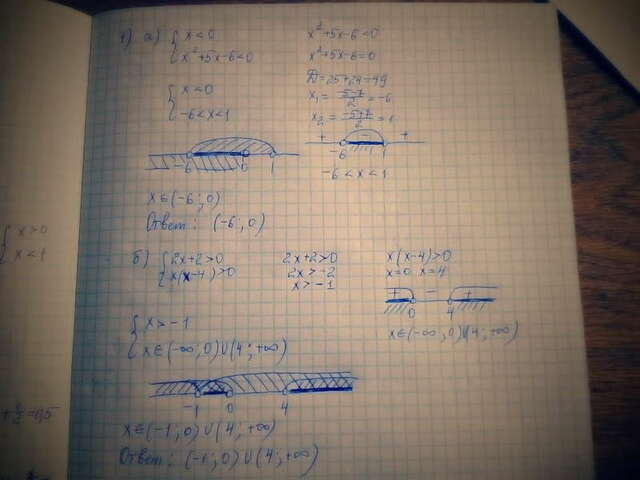 1) а) { x < 0
x² + 5x - 6 < 0
x² + 5x - 6 < 0
x² + 5x - 6 = 0
D = 25 + 24 = 49
x₁ = (-5-7)/2 = -6
x₂ = (-5+7)/2 = 1
{ x < 0
-6 < x < 1
+ - +
-6 1
-6 < x < 1
-6 0 1
x ∈ (-6; 0)
Ответ: (-6; 0)
б) { 2x + 2 > 0
x(x - 4) > 0
2x + 2 > 0
2x > -2
x > -1
x(x - 4) > 0
x = 0 x = 4
+ - +
0 4
x ∈ (-∞; 0) U (4; +∞)
{ x > -1
x ∈ (-∞; 0) U (4; +∞)
-1 0 4
x ∈ (-1; 0) U (4; +∞)
Ответ: (-1; 0) U (4; +∞)
{ x > 0
x < 1